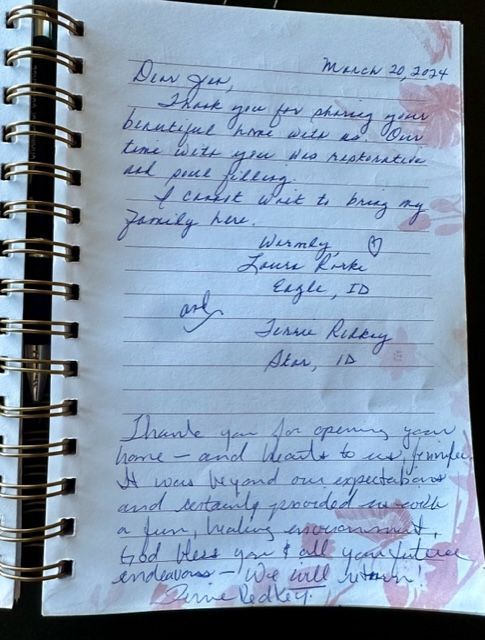 March 20, 2024
Dear Jen,
Thank you for sharing your
beautiful home with us. Our
time with you was restorative
and soul filling.
I cannot wait to bring my
family here.
Warmly, ♡
Laura
Eagle, ID
and
Terrie Redkey
Star, ID
Thank you for opening your
home – and hearts to us, Jennifer.
It was beyond our expectations
and certainly provided us with
a fun, healing environment.
God bless you & all your future
endeavors – We will return!
Terrie Redkey